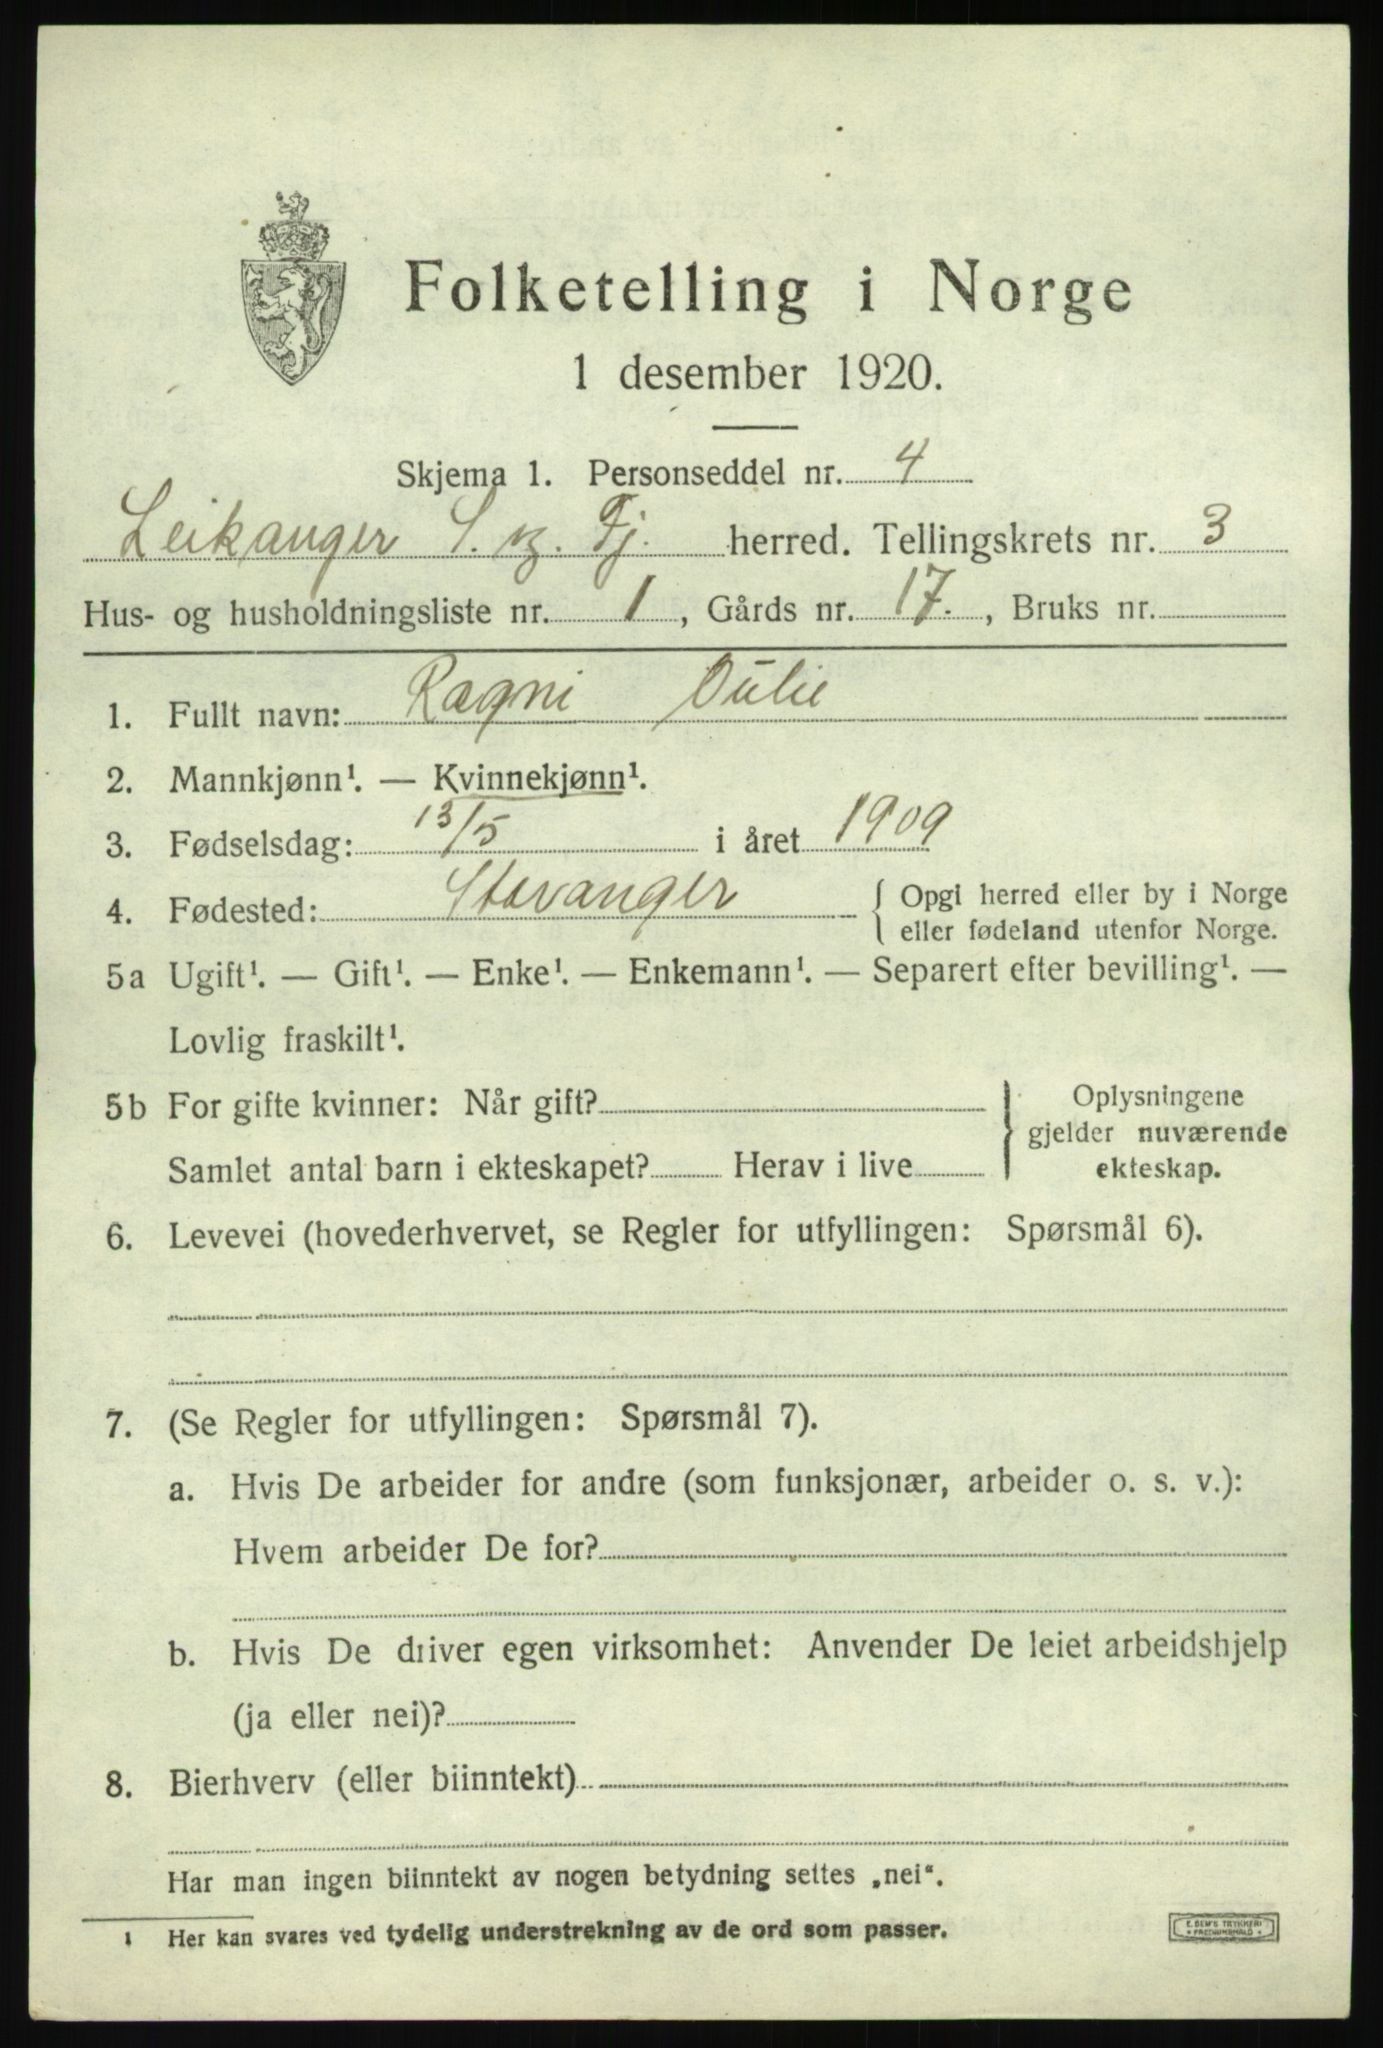 Folketelling i Norge
1 desember 1920.
Skjema 1. Personseddel nr. 4
Leikanger S. og Fj. herred. Tellingskrets nr. 3
Hus- og husholdningsliste nr. 1, Gårds nr. 17., Bruks nr.
1. Fullt navn: Ragni Oulie
2. Mannkjønn¹. — Kvinnekjønn¹.
3. Fødselsdag: 13/5 i året 1909
4. Fødested: Stavanger { Opgi herred eller by i Norge
eller fødeland utenfor Norge.
5a Ugift¹. — Gift¹. — Enke¹. — Enkemann¹. — Separert efter bevilling¹. —
Lovlig fraskilt¹.
5b For gifte kvinner: Når gift?
Samlet antal barn i ekteskapet? Herav i live
} Oplysningene
gjelder nuværende
ekteskap.
6. Levevei (hovederhvervet, se Regler for utfyllingen: Spørsmål 6).
7. (Se Regler for utfyllingen: Spørsmål 7).
a. Hvis De arbeider for andre (som funksjonær, arbeider o. s. v.):
Hvem arbeider De for?
b. Hvis De driver egen virksomhet: Anvender De leiet arbeidshjelp
(ja eller nei)?
8. Bierhverv (eller biinntekt)
Har man ingen biinntekt av nogen betydning settes „nei“.
1 Her kan svares ved tydelig understrekning av de ord som passer.
E. SEM'S TRYKKERI
FREDRIKSHALD